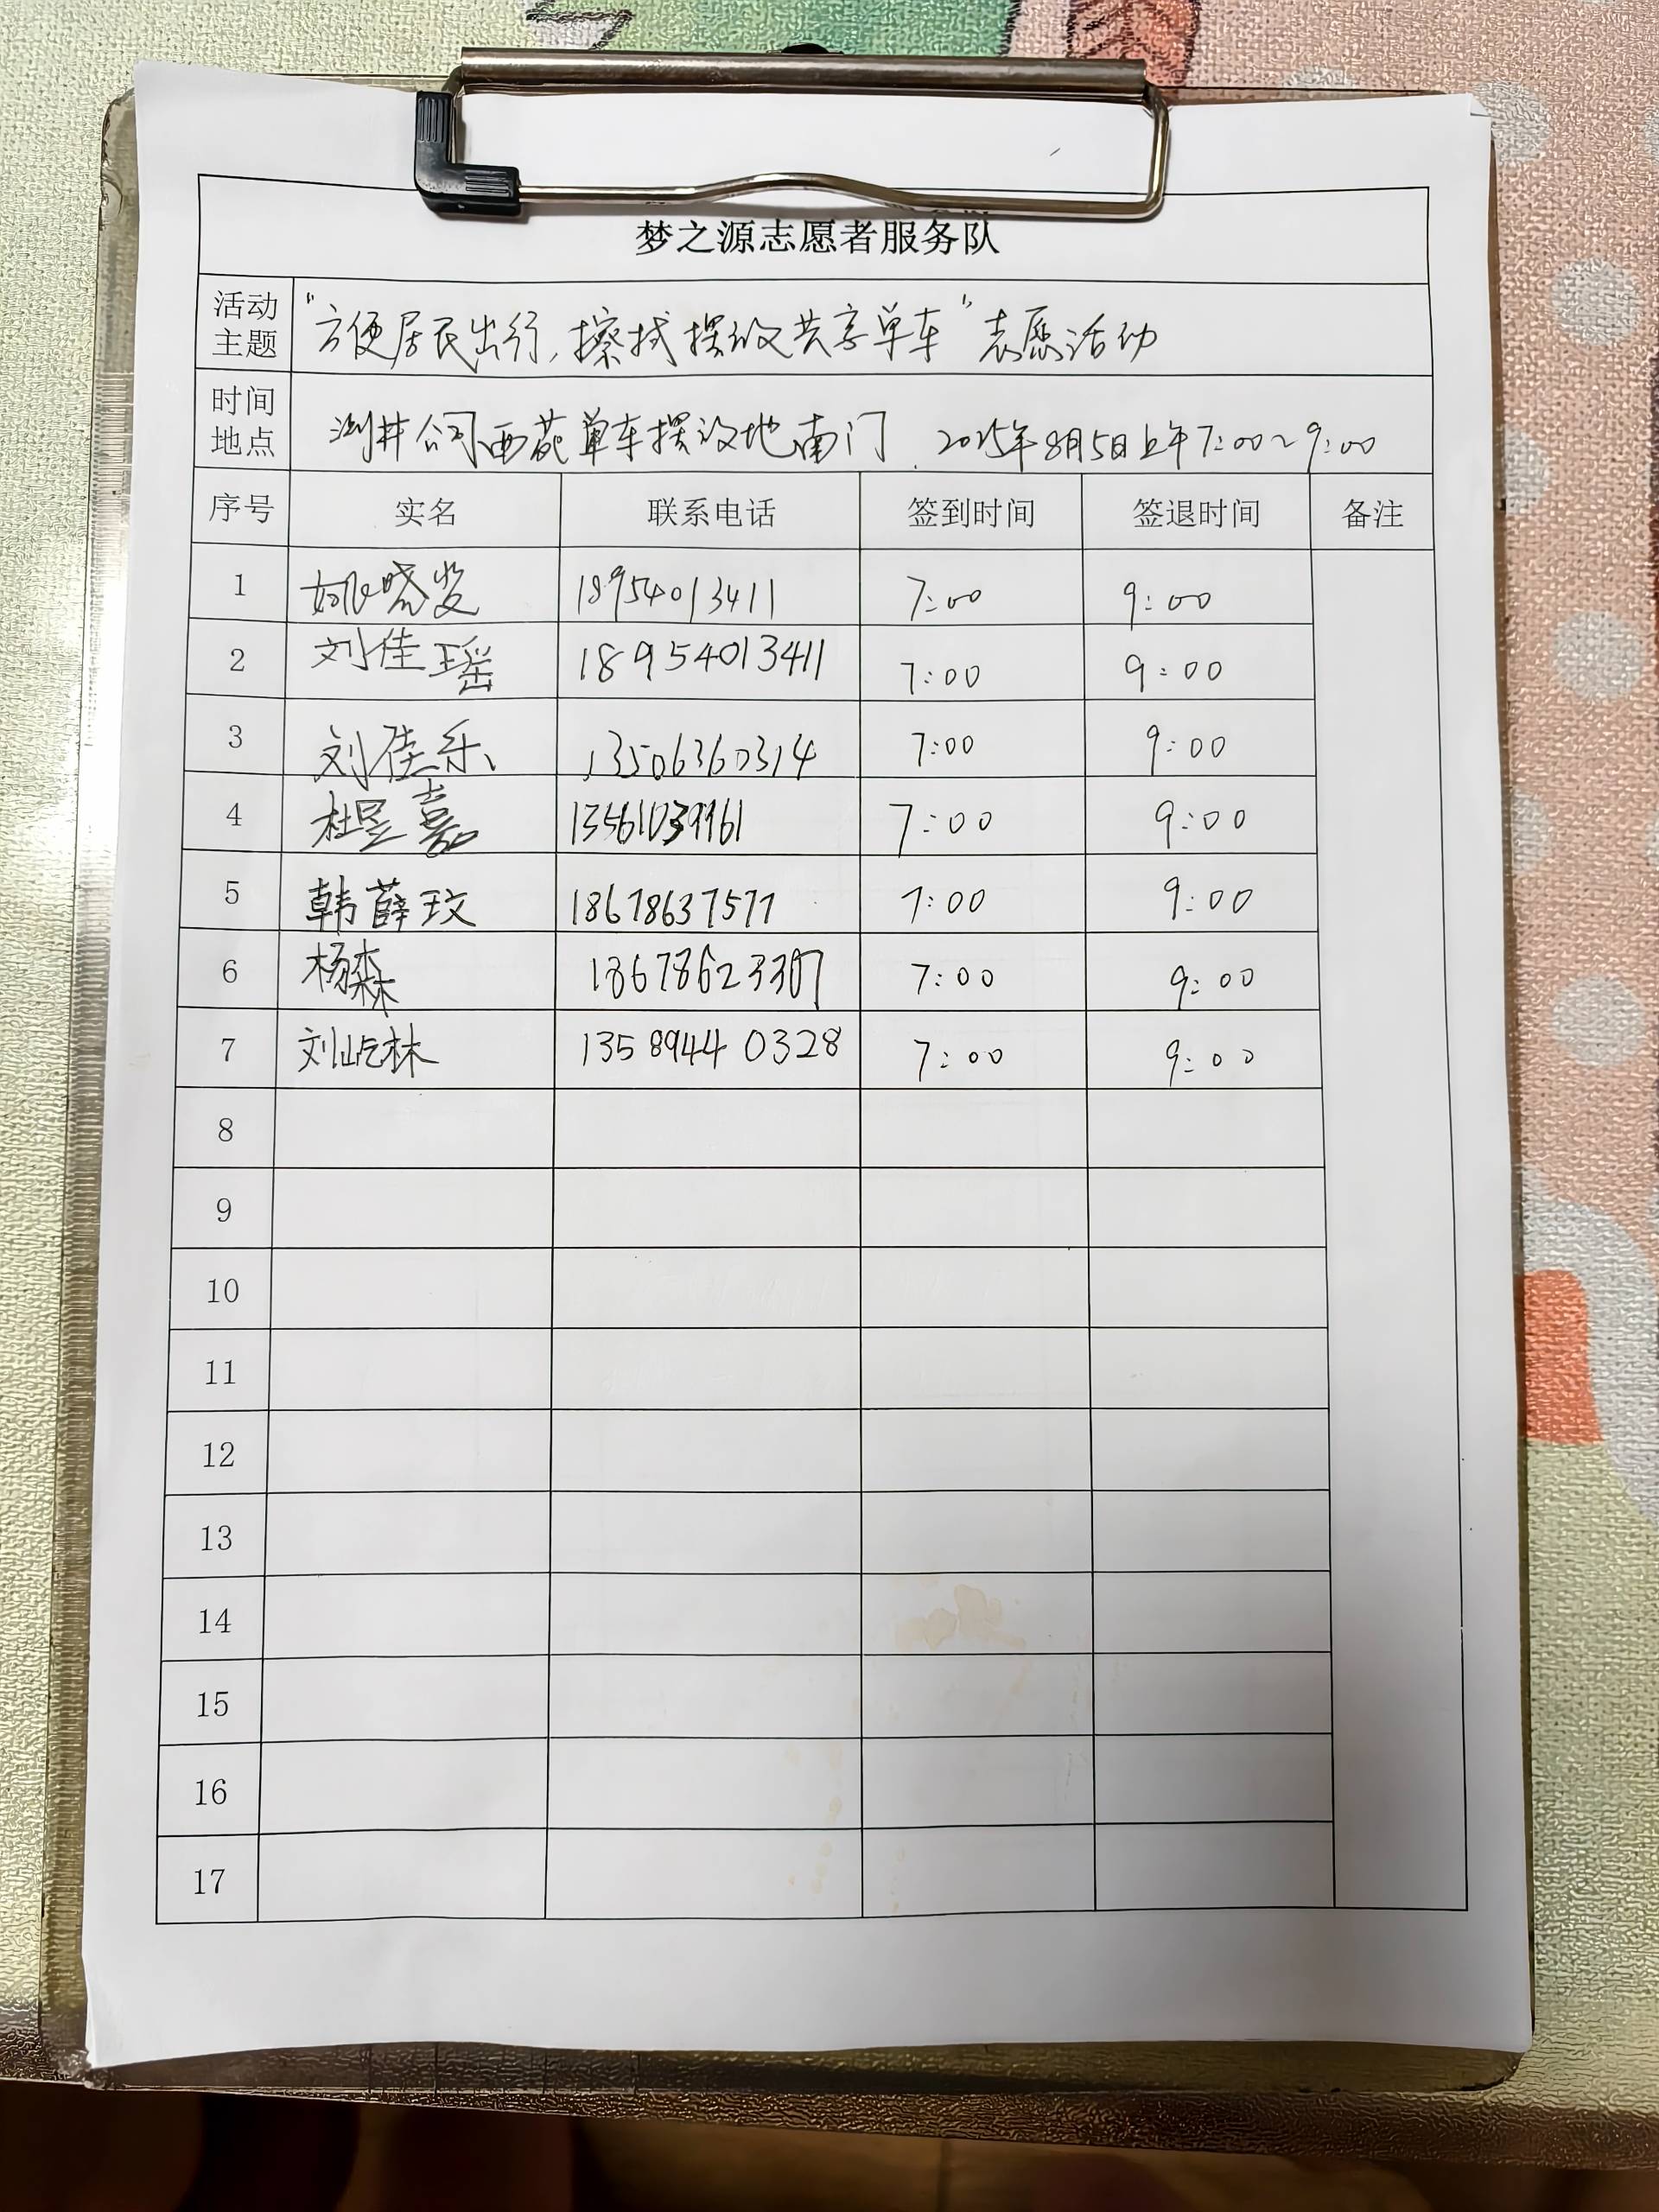 梦之源志愿者服务队
活动主题 “方便居民出行,擦拭摆放共享单车”志愿活动
时间地点 测井公司西苑单车摆放地南门 2025年8月5日上午7:00~9:00
序号 实名 联系电话 签到时间 签退时间 备注
1 姚晓 18954013411 7:00 9:00
2 刘佳瑶 18954013411 7:00 9:00
3 刘佳乐 13506360314 7:00 9:00
4 杜昱嘉 13561039961 7:00 9:00
5 韩薛玟 18678637577 7:00 9:00
6 杨森 18678623307 7:00 9:00
7 刘屹林 13589440328 7:00 9:00
8
9
10
11
12
13
14
15
16
17